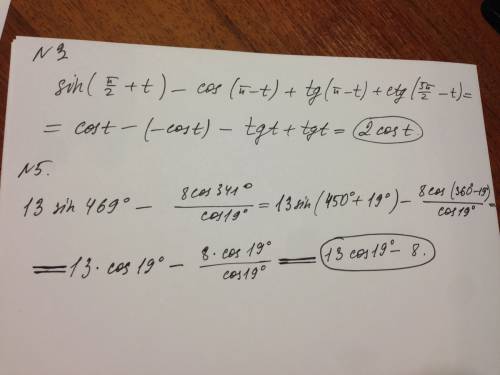 №3
sin(π/2 + t) − cos(π−t) + tg(π−t) + ctg(3π/2 − t) =
= cost − (−cost) − tgt + tgt = 2cost
№5.
13 sin 469° − 8cos 341°/cos19° = 13sin(450°+19°) − 8cos(360°−19°)/cos19° =
= 13 · cos 19° − 8 · cos 19°/cos19° = 13 cos19° − 8.